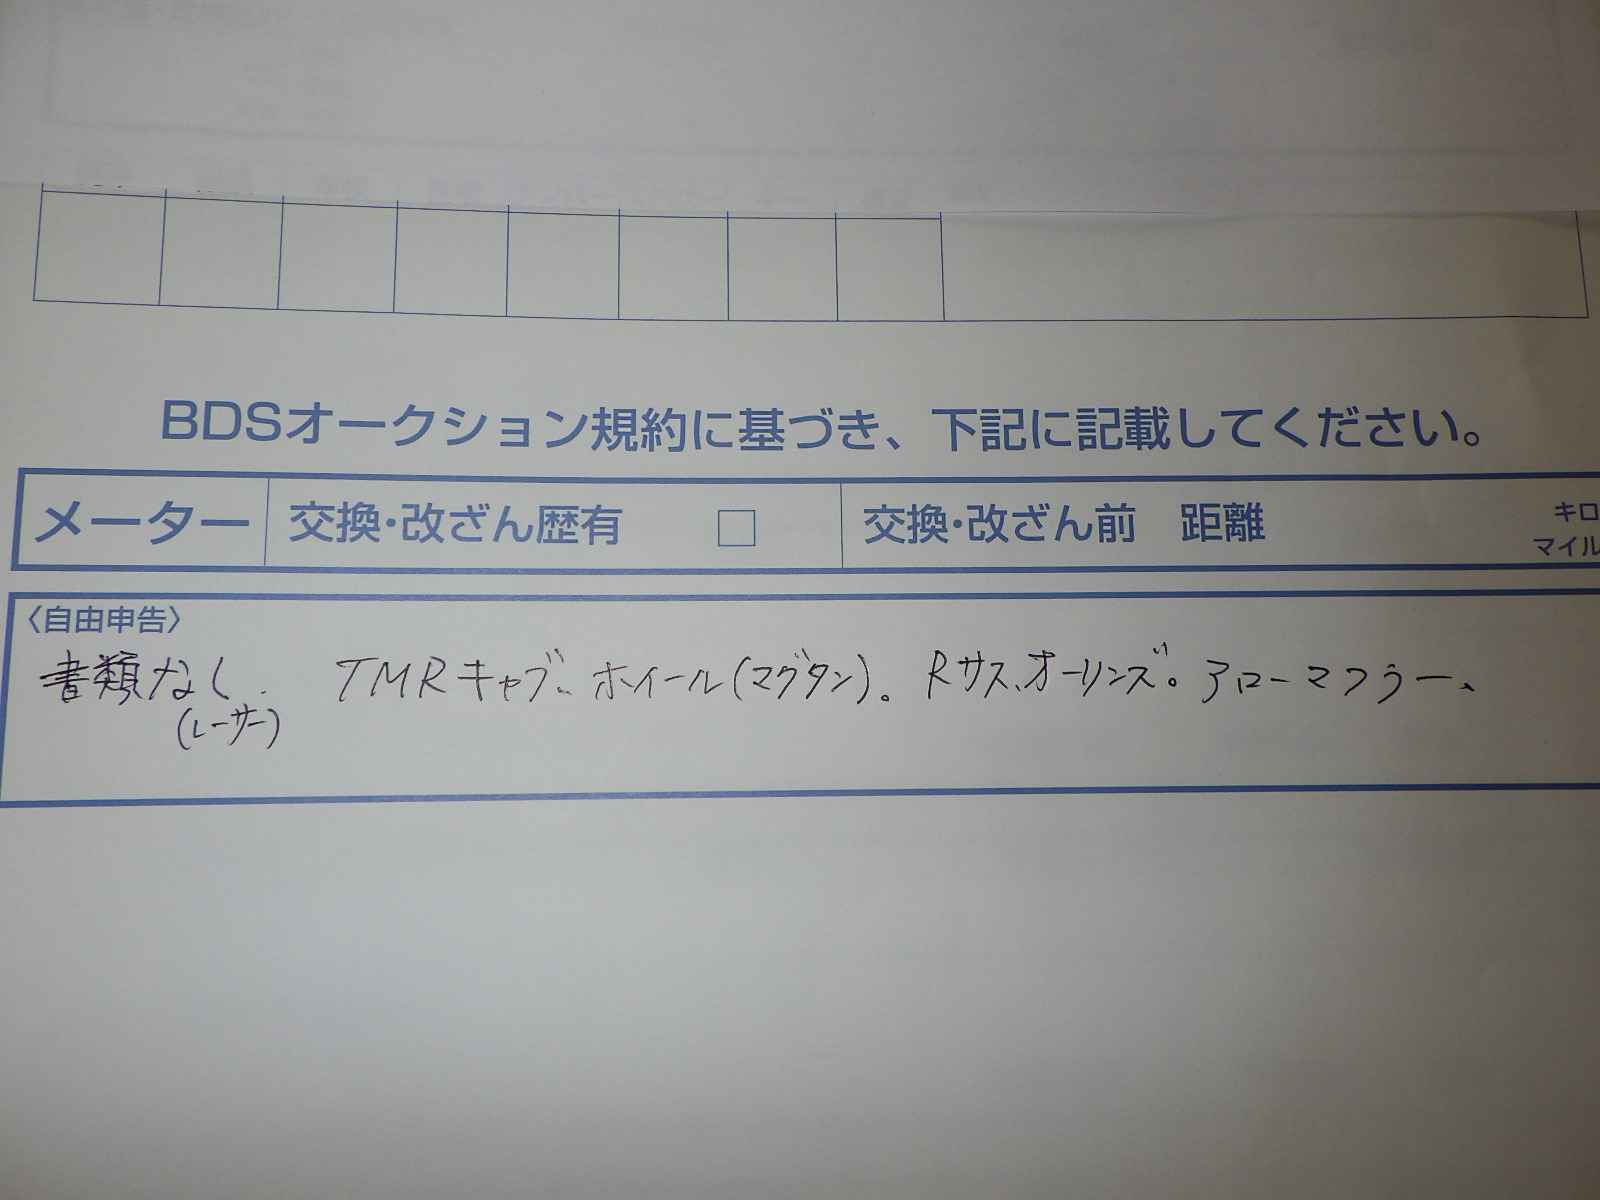 BDSオークション規約に基づき、下記に記載してください。
メーター 交換・改ざん歴有 □ 交換・改ざん前 距離 キロ
マイル
〈自由申告〉
書類なし. TMRキャブ、ホイール(マグタン)。Rサス、オーリンズ。アローマフラー、
(レーサー)